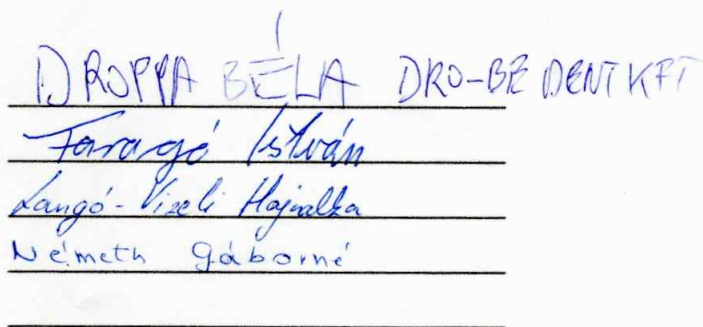 DROPPA BÉLA DRO-BE DENT KFT
Faragó István
Langó-Vizeli Hajnalka
Németh Gáborné